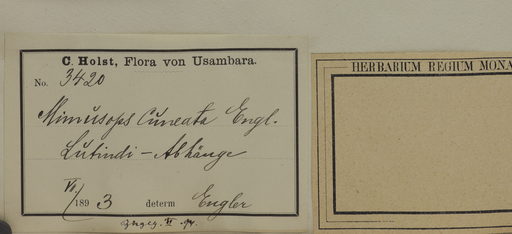 C. Holst, Flora von Usambara.
No. 3420
Mimusops cuneata Engl.
Lutindi - Abhänge
VI./1893 determ Engler
HERBARIUM REGIUM MONA